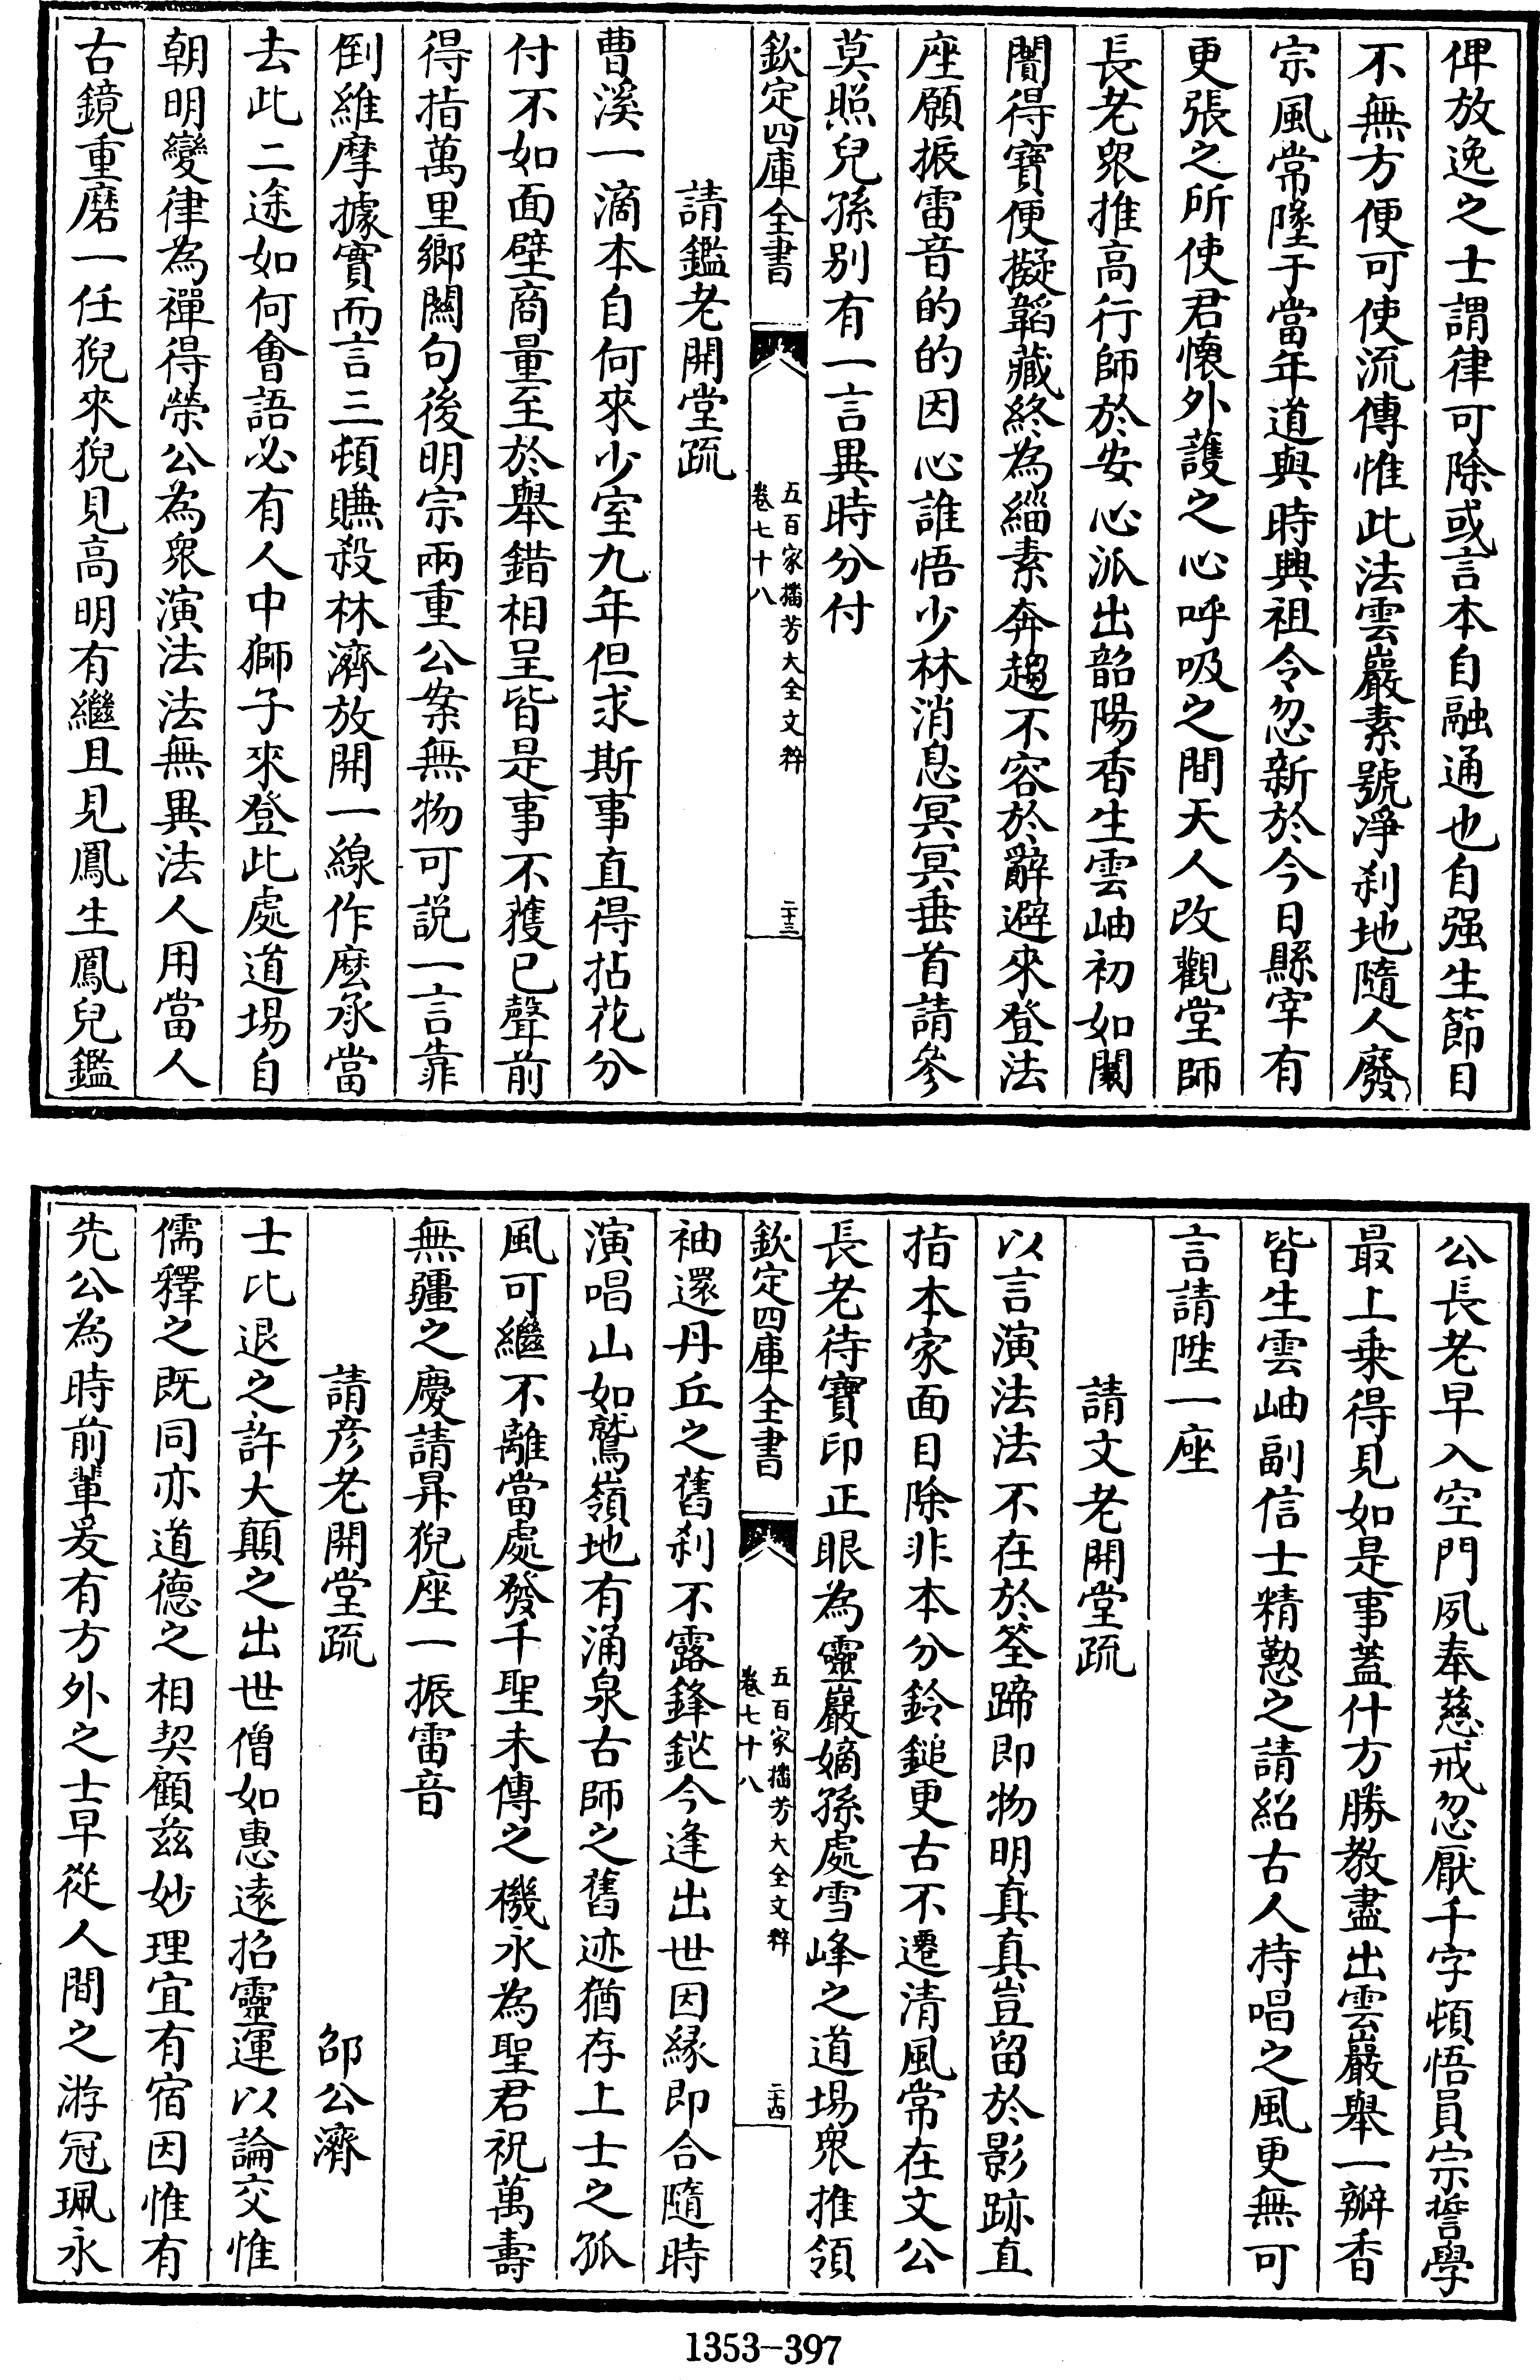 俾放逸之士謂律可除或言本自融通也自强生節目
不無方便可使流傳惟此法雲巖素號凈刹地隨人廢
宗風常墬于當年道與時興祖令忽新於今日縣宰有
更張之所使君懷外護之心呼吸之間天人改觀堂師
長老衆推高行師於安心派出韶陽香生雲岫初如闤
闇得寶便擬韜藏終為緇素奔趨不容於辭避來登法
座願振雷音的的因心誰悟少林消息冥冥垂首請參
莫照兒孫别有一言異時分付
欽定四庫全書
五百家播芳大全文粹
卷七十八
二十三
請鑑老開堂疏
曹溪一滴本自何來少室九年但求斯事直得拈花分
付不如面壁商量至於舉錯相呈皆是事不獲已聲前
得指萬里鄉關句後明宗兩重公案無物可説一言靠
倒維摩據實而言三頓賺殺林濟放開一線作麽承當
去此二途如何會語必有人中獅子來登此處道場自
朝明變律為禪得榮公為衆演法法無異法人用當人
古鏡重磨一任猊來猊見高明有繼且見鳳生鳳兒鑑
公長老早入空門夙奉慈戒忽厭千字頓悟員宗誓學
最上乗得見如是事蓋什方勝教盡出雲巖舉一瓣香
皆生雲岫副信士精懃之請紹古人持唱之風更無可
言請陞一座
請文老開堂疏
以言演法法不在於筌蹄即物明真真豈留於影跡直
指本家面目除非本分鈴鎚更古不遷清風常在文公
長老待寶印正眼為靈巖嫡孫處雪峰之道場衆推領
欽定四庫全書
五百家播芳大全文粹
卷七十八
二十四
袖還丹丘之舊刹不露鋒鋩今逢出世因緣即合隨時
演唱山如鷲嶺地有涌泉古師之舊迹猶存上士之孤
風可繼不離當處發千聖未傳之機永為聖君祝萬壽
無疆之慶請昇猊座一振雷音
請彦老開堂疏 邵公濟
士比退之許大顛之出世僧如惠遠招靈運以論交惟
儒釋之既同亦道德之相契顧兹妙理宜有宿因惟有
先公為時前輩爰有方外之士早從人間之游冠珮永
1353-397